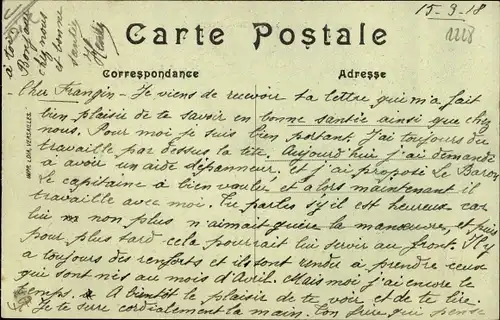 15-3-18
2228
à toi
Bonjour
chez nous
et bonne
santé
Henri
Carte Postale
Correspondance
Adresse
Cher Frangin - Je viens de recevoir ta lettre qui m'a fait
bien plaisir de te savoir en bonne santée ainsi que chez
nous. Pour moi je suis bien portant. J'ai toujours du
travaille par dessus la tête. Aujourd'hui j'ai demandé
à avoir un aide dépanneur, et j'ai proposé Le Baron
Le capitaine à bien voulu et alors maintenant il
travaille avec moi. Tu parles s'y il est heureux car
lui non plus n'aimait guère la manœuvre, et puis
pour plus tard cela pourrait lui servir au front. Il y
a toujours des renforts et ils sont rendu à prendre ceux
qui sont nis au mois d'Avril. Mais moi j'ai encore le
temps. A bientôt le plaisir de te voir et de te lire.
Je te serre cordialement la main. Ton frère qui pense
IMP. LEON, VERSAILLES